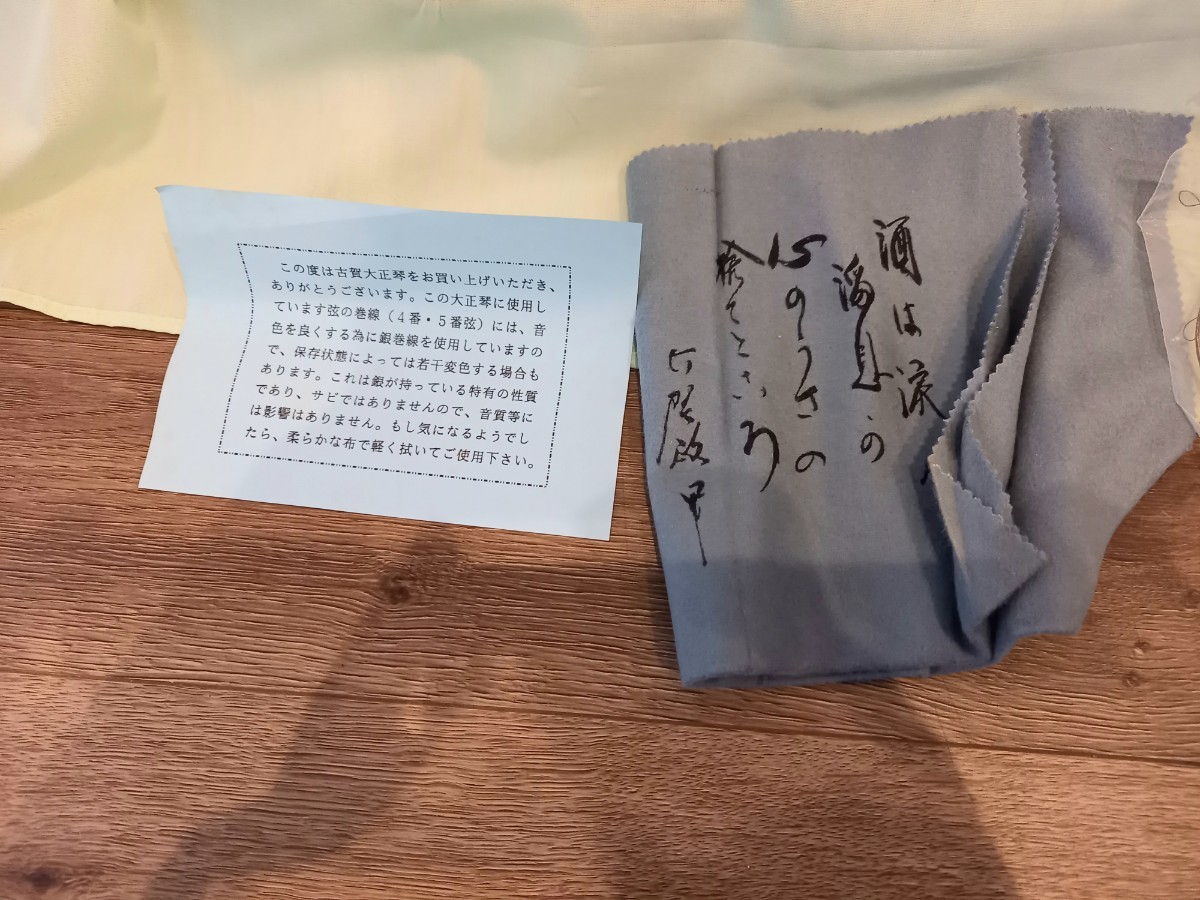 この度は古賀大正琴をお買い上げいただき、
ありがとうございます。この大正琴に使用し
ています弦の巻線（４番・５番弦）には、音
色を良くする為に銀巻線を使用していますの
で、保存状態によっては若干変色する場合も
あります。これは銀が持っている特有の性質
であり、サビではありませんので、音質等に
は影響はありません。もし気になるようでし
たら、柔らかな布で軽く拭いてご使用下さい。
酒は涙
溜息の
心のうさの
捨てどころ